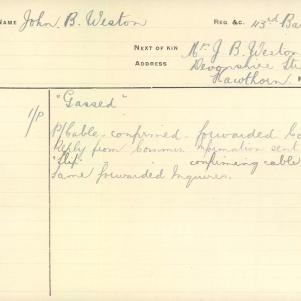 NAME John. B. Weston REG. &C. 43rd Ba
NEXT OF KIN Mr. J B. Weston
ADDRESS Devonshire St
Hawthorn.
"Gassed"
1/P P/Cable confirmed forwarded
Reply from Commun information sent
"Slip" confirming cable
Same forwarded Inquirer.